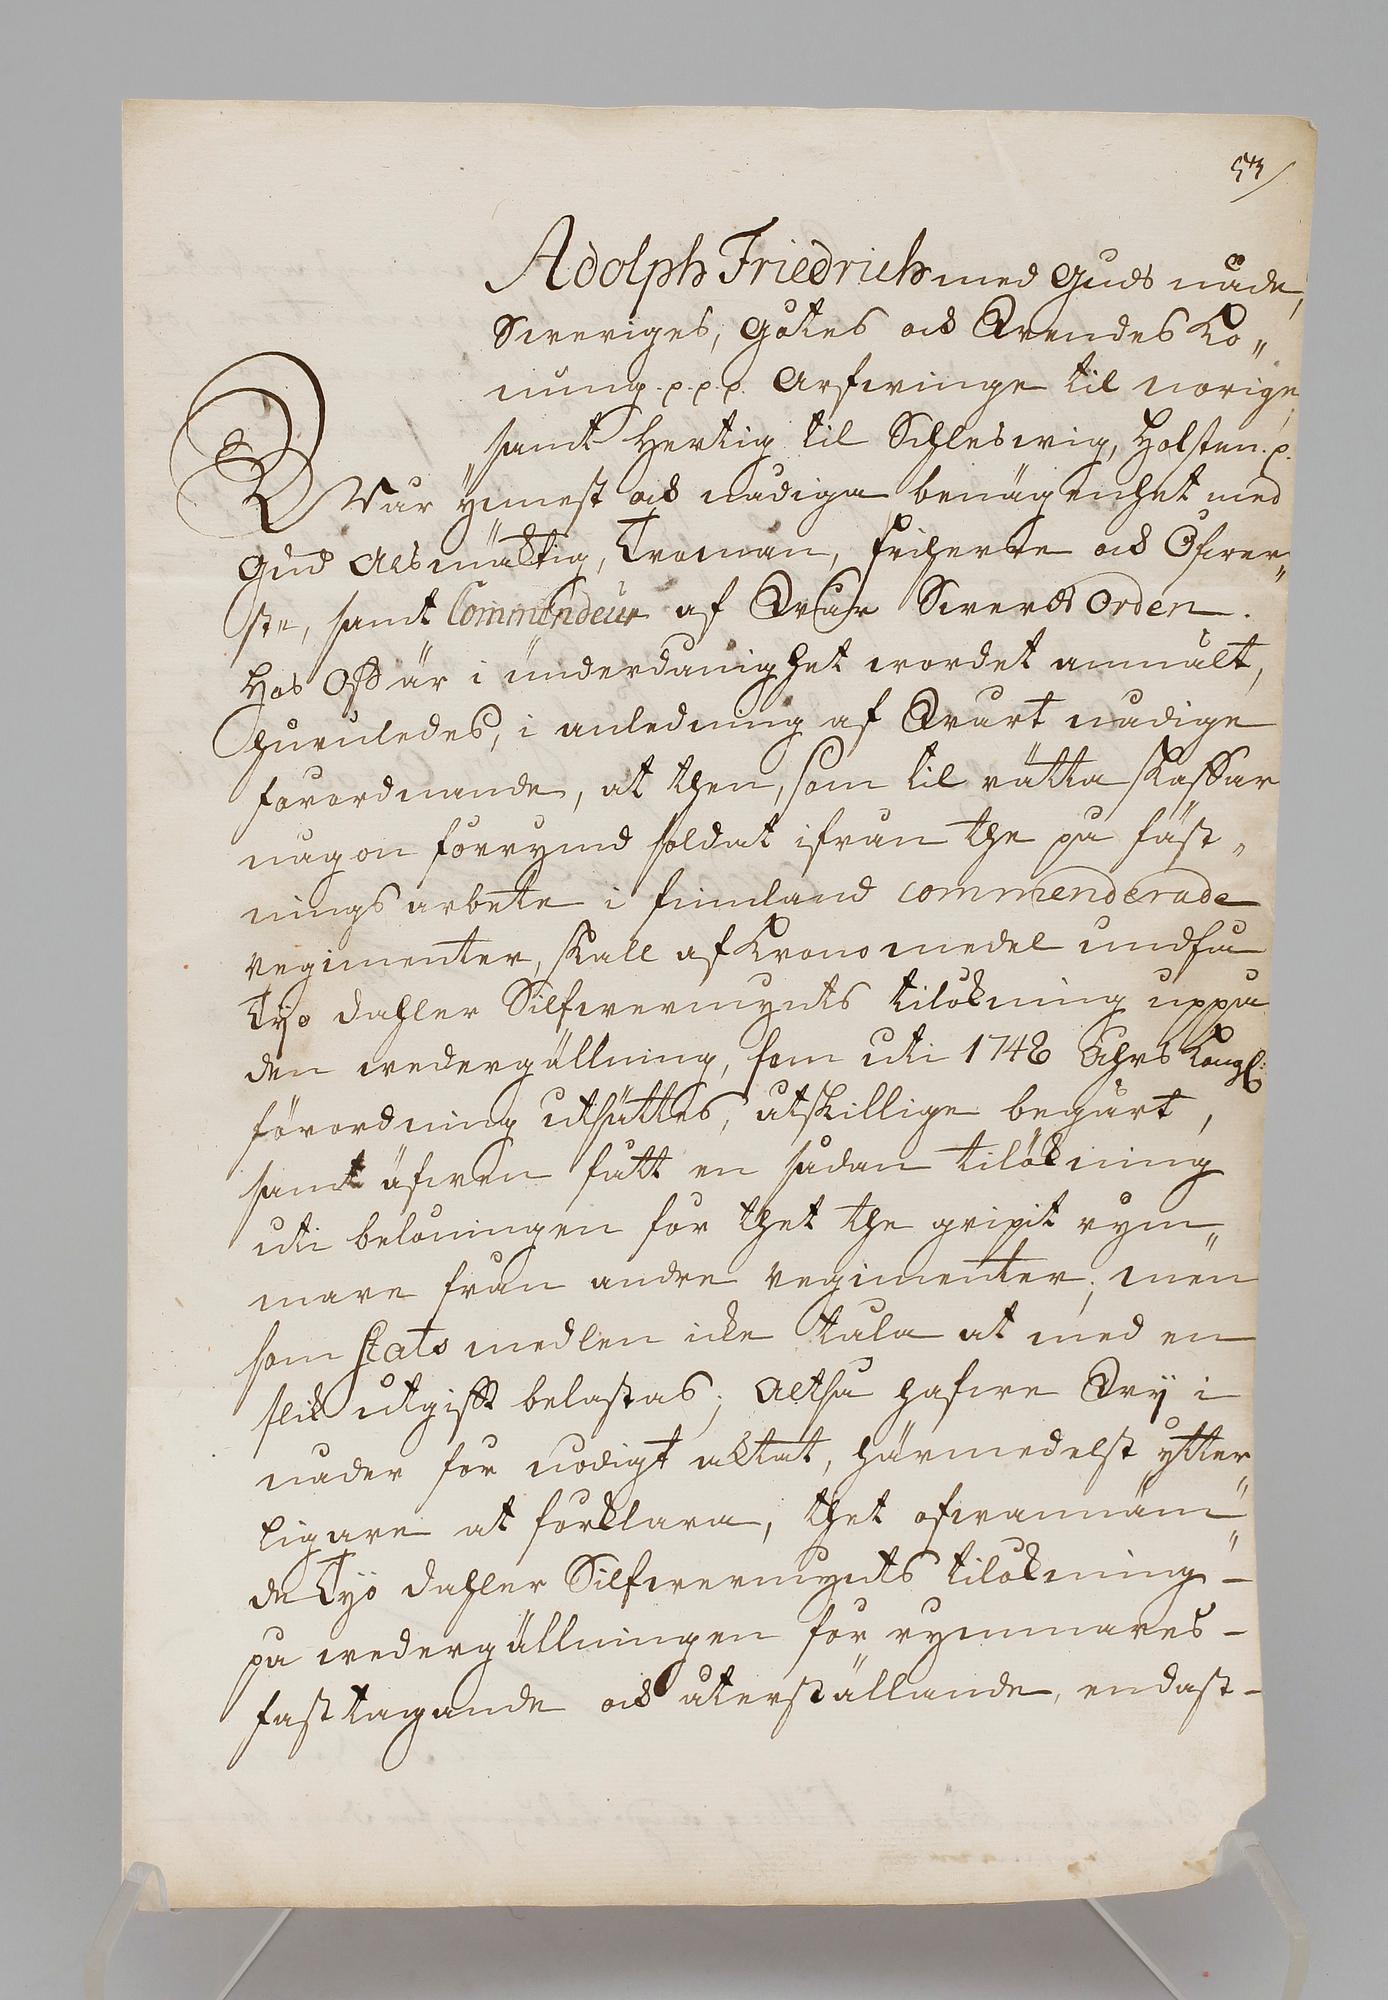 53
Adolph Friedrich med Guds nåde,
Sweriges, Götes och Wendes Ko„
nung p. p. p. Arfwinge til Norige,
samt Hertig til Schleswig, Holsten p.
Wår ynnest och nådiga benägenhet med
Gud Alsmäktig, Troman, Friherre och Öfwer„
ste, samt Commendeur af Wår Swerds Orden.
Hos Oss är i underdånighet wordet anmält,
huruledes, i anledning af Wårt nådige
förordnande, at then, som til rätta skaffar
någon förrymd soldat ifrån the på fäst„
nings arbete i Finnland commenderade
regimenter, skall af Krono medel undfå
Tyo dahler Silfwermynts tilökning uppå
den wedergällning, som uti 1748 Åhrs Kongl:
förordning utsättes, åtskillige begärt,
samt äfwen fått en sådan tilökning
uti belöningen för thet the gripit rym„
mare från andre regimenter; men
som Stats medlen icke tåla at med en
slik utgifft belastas; Altså hafwe Wÿ i
nåder för nödigt aktat, härmedelst ytter„
ligare at förklara, thet ofwannäm„
de Tyo dahler Silfwermynts tilökning
på wedergällningen för rymmares
fasttagande och återställande, endast